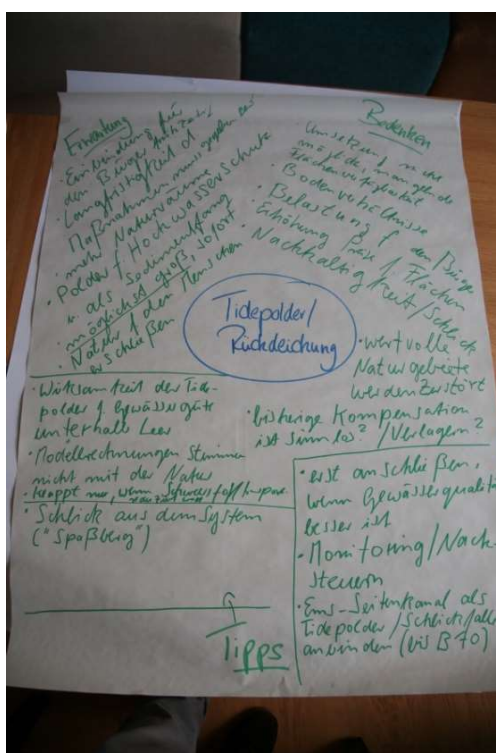 Erwartung
Einbindung für
den Bürger
· Langfristigkeit d.
Maßnahmen muss gegeben sein
· mehr Naturräume
· Polder f. Hochwasserschutz
u. als Sedimentfang
· möglichst groß, sofort
· Natur f. den Menschen
erschließen
Bedenken
Umsetzung nicht
möglich, mangelnde
Flächenverfügbarkeit
· Bodenverhältnisse
· Belastung f. den Bürger
· Erhöhung Preise f. Flächen
· Nachhaltigkeit/Schlick
· wertvolle
Naturgebiete
werden zerstört
· bisherige Kompensation
ist sinnlos? / Verlagern?
Tidepolder/
Rückdeichung
· Wirksamkeit der Tide-
polder f. Gewässergüte
unterhalb Leer
· Modellrechnungen stimmen
nicht mit der Natur
· klappt nur, wenn
· Schlick aus dem System
("Spaßberg")
· erst anschließen,
wenn Gewässerqualität
besser ist
· Monitoring/Nach-
steuern
· Ems-Seitenkanal als
Tidepolder/Schlickfalle
anbinden (bis B70)
Tipps